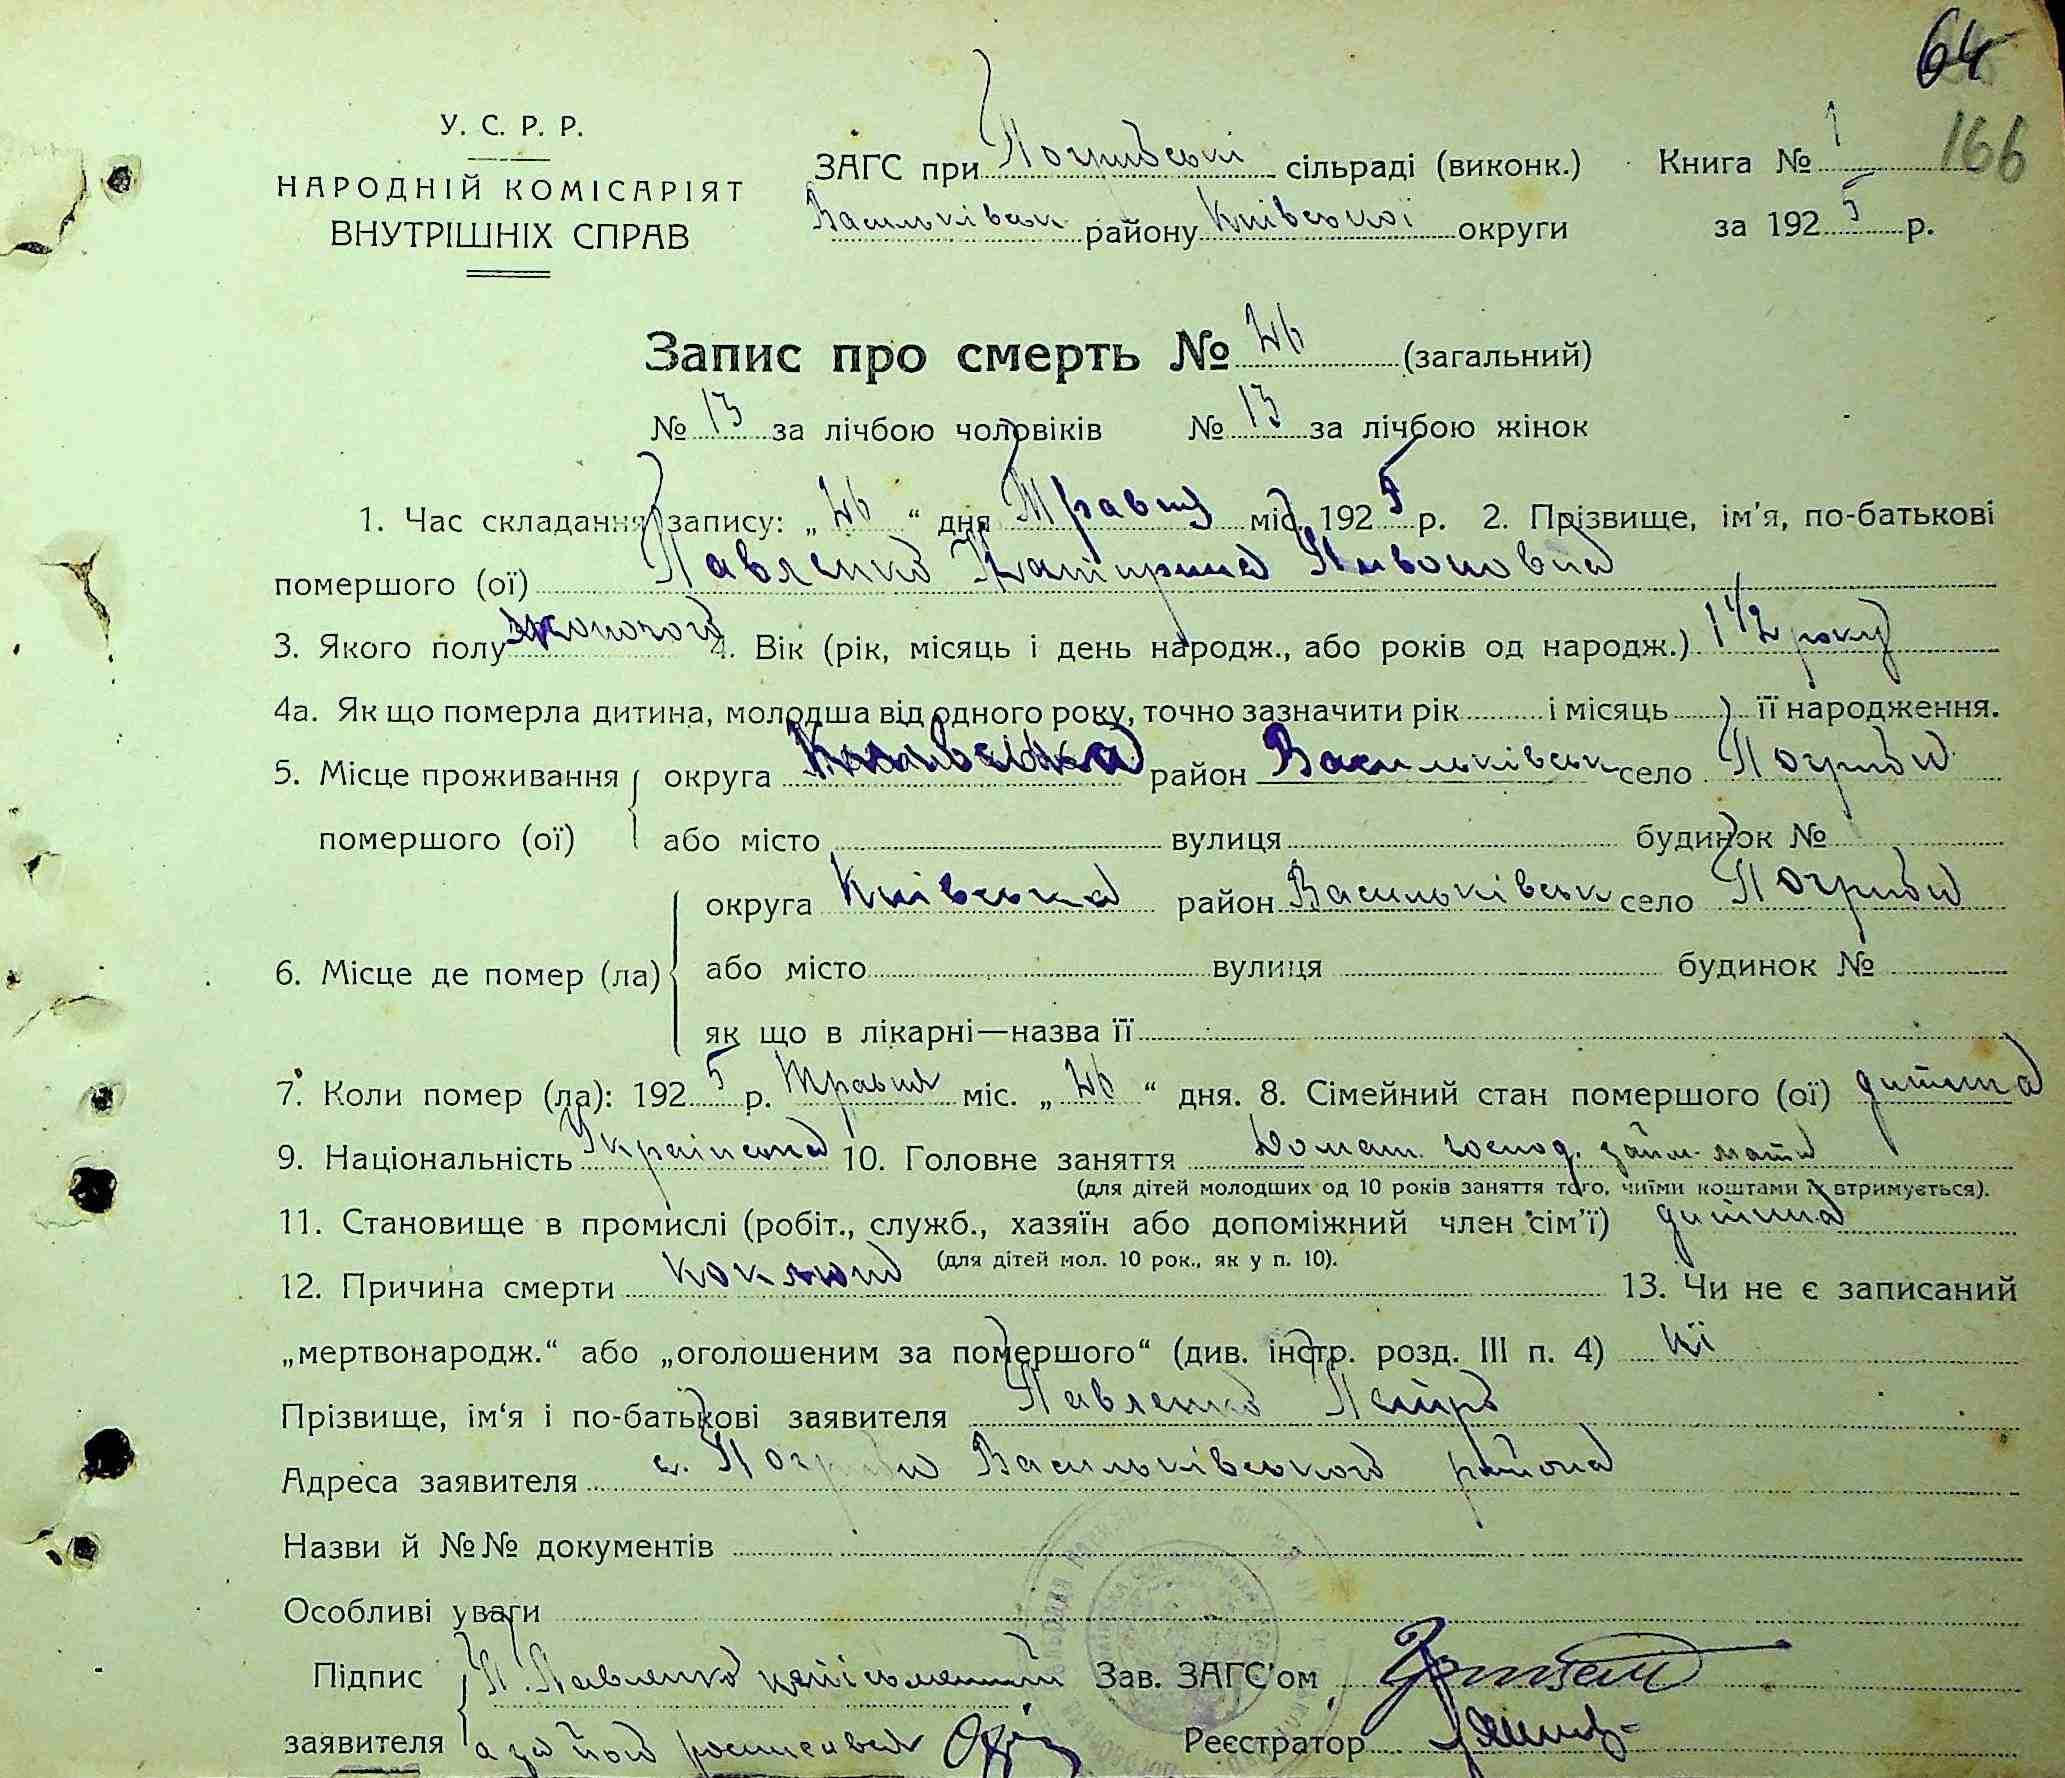 64
166
У. С. Р. Р.
НАРОДНІЙ КОМІСАРІЯТ
ВНУТРІШНІХ СПРАВ
ЗАГС при Погребській сільраді (виконк.) Книга № 1
Васильківськ району Київської округи за 1925 р.
Запис про смерть № 26 (загальний)
№ 13 за лічбою чоловіків № 13 за лічбою жінок
1. Час складання запису: „26“ дня Травня міс. 1925 р. 2. Прізвище, ім'я, по-батькові
помершого (ої) Павленко Катирина
3. Якого полу жоночого 4. Вік (рік, місяць і день народж., або років од народж.) 1 1/2 року
4а. Як що померла дитина, молодша від одного року, точно зазначити рік і місяць її народження.
5. Місце проживання округа Київська район Васильківськ село Погреби
помершого (ої) або місто вулиця будинок №
округа Київська район Васильківськ село Погреби
6. Місце де помер (ла) або місто вулиця будинок №
як що в лікарні—назва її
7. Коли помер (ла): 1925 р. Травня міс. „26“ дня. 8. Сімейний стан помершого (ої) дитина
9. Національність Українка 10. Головне заняття Домаш. господ. займ. мати
(для дітей молодших од 10 років заняття того, чиїми коштами їх втримується).
11. Становище в промислі (робіт., служб., хазяїн або допоміжний член сім'ї) дитина
(для дітей мол. 10 рок., як у п. 10).
12. Причина смерти коклюш 13. Чи не є записаний
„мертвонародж.“ або „оголошеним за помершого“ (див. інстр. розд. III п. 4) ні
Прізвище, ім'я і по-батькові заявителя Павленко Петро
Адреса заявителя с. Погреби Васильківського района
Назви й №№ документів
Особливі уваги
Підпис П. Павленко неписьменний Зав. ЗАГС'ом
заявителя а за його росписався Реєстратор